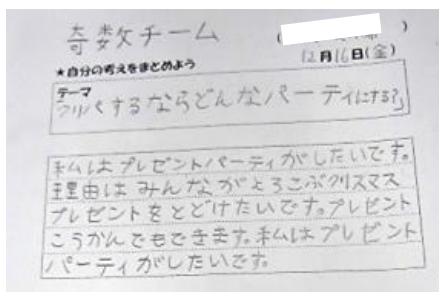 奇数チーム
( )
12月16日(金)
★自分の考えをまとめよう
テーマ
クリパするならどんなパーティにする?」
私はプレゼントパーティがしたいです。
理由はみんながよろこぶクリスマス
プレゼントをとどけたいです。プレゼント
こうかんでもできます。私はプレゼント
パーティがしたいです。